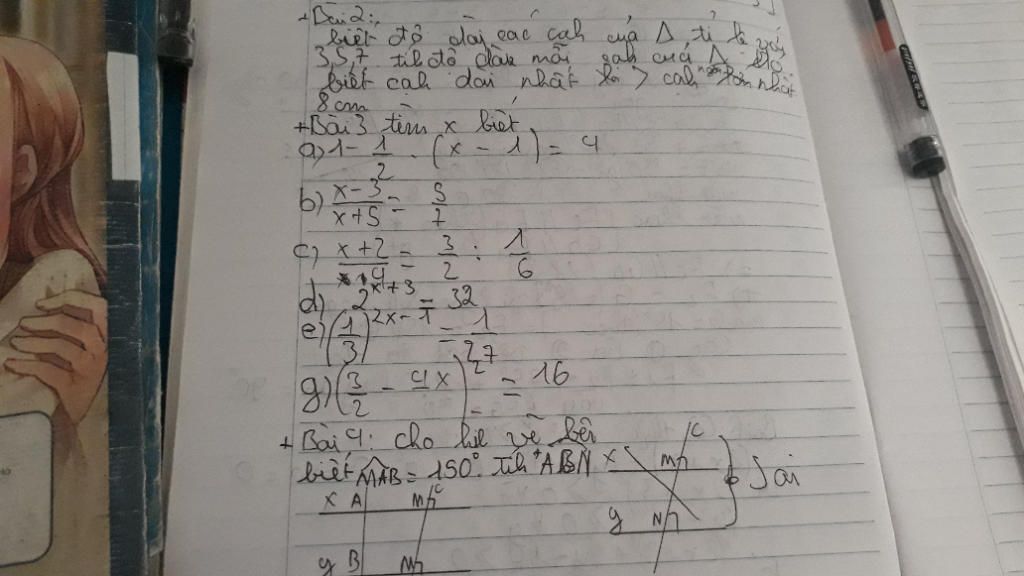 + Bài 2:
biết độ dài các cah của Δ tỉ lệ với
3,5,7 tih độ dài mỗi cah của Δ đó
biết cah dài nhất là > cah nhất
8cm
+ Bài 3 tìm x biết
a) 1 - 1/2 . (x - 1) = 4
b) x-3/x+5 = 5/7
c) x+2/4 = 3/2 : 1/6
d) 2^x+3 = 32
e) (1/3)^2x-1 = 1/27
g) (3/2 - 4x)^2 = 16
+ Bài 4: cho hìh vẽ bên
biết MAB = 150° tíh ABN
x A M C
y B N
x M C
y N
Sai